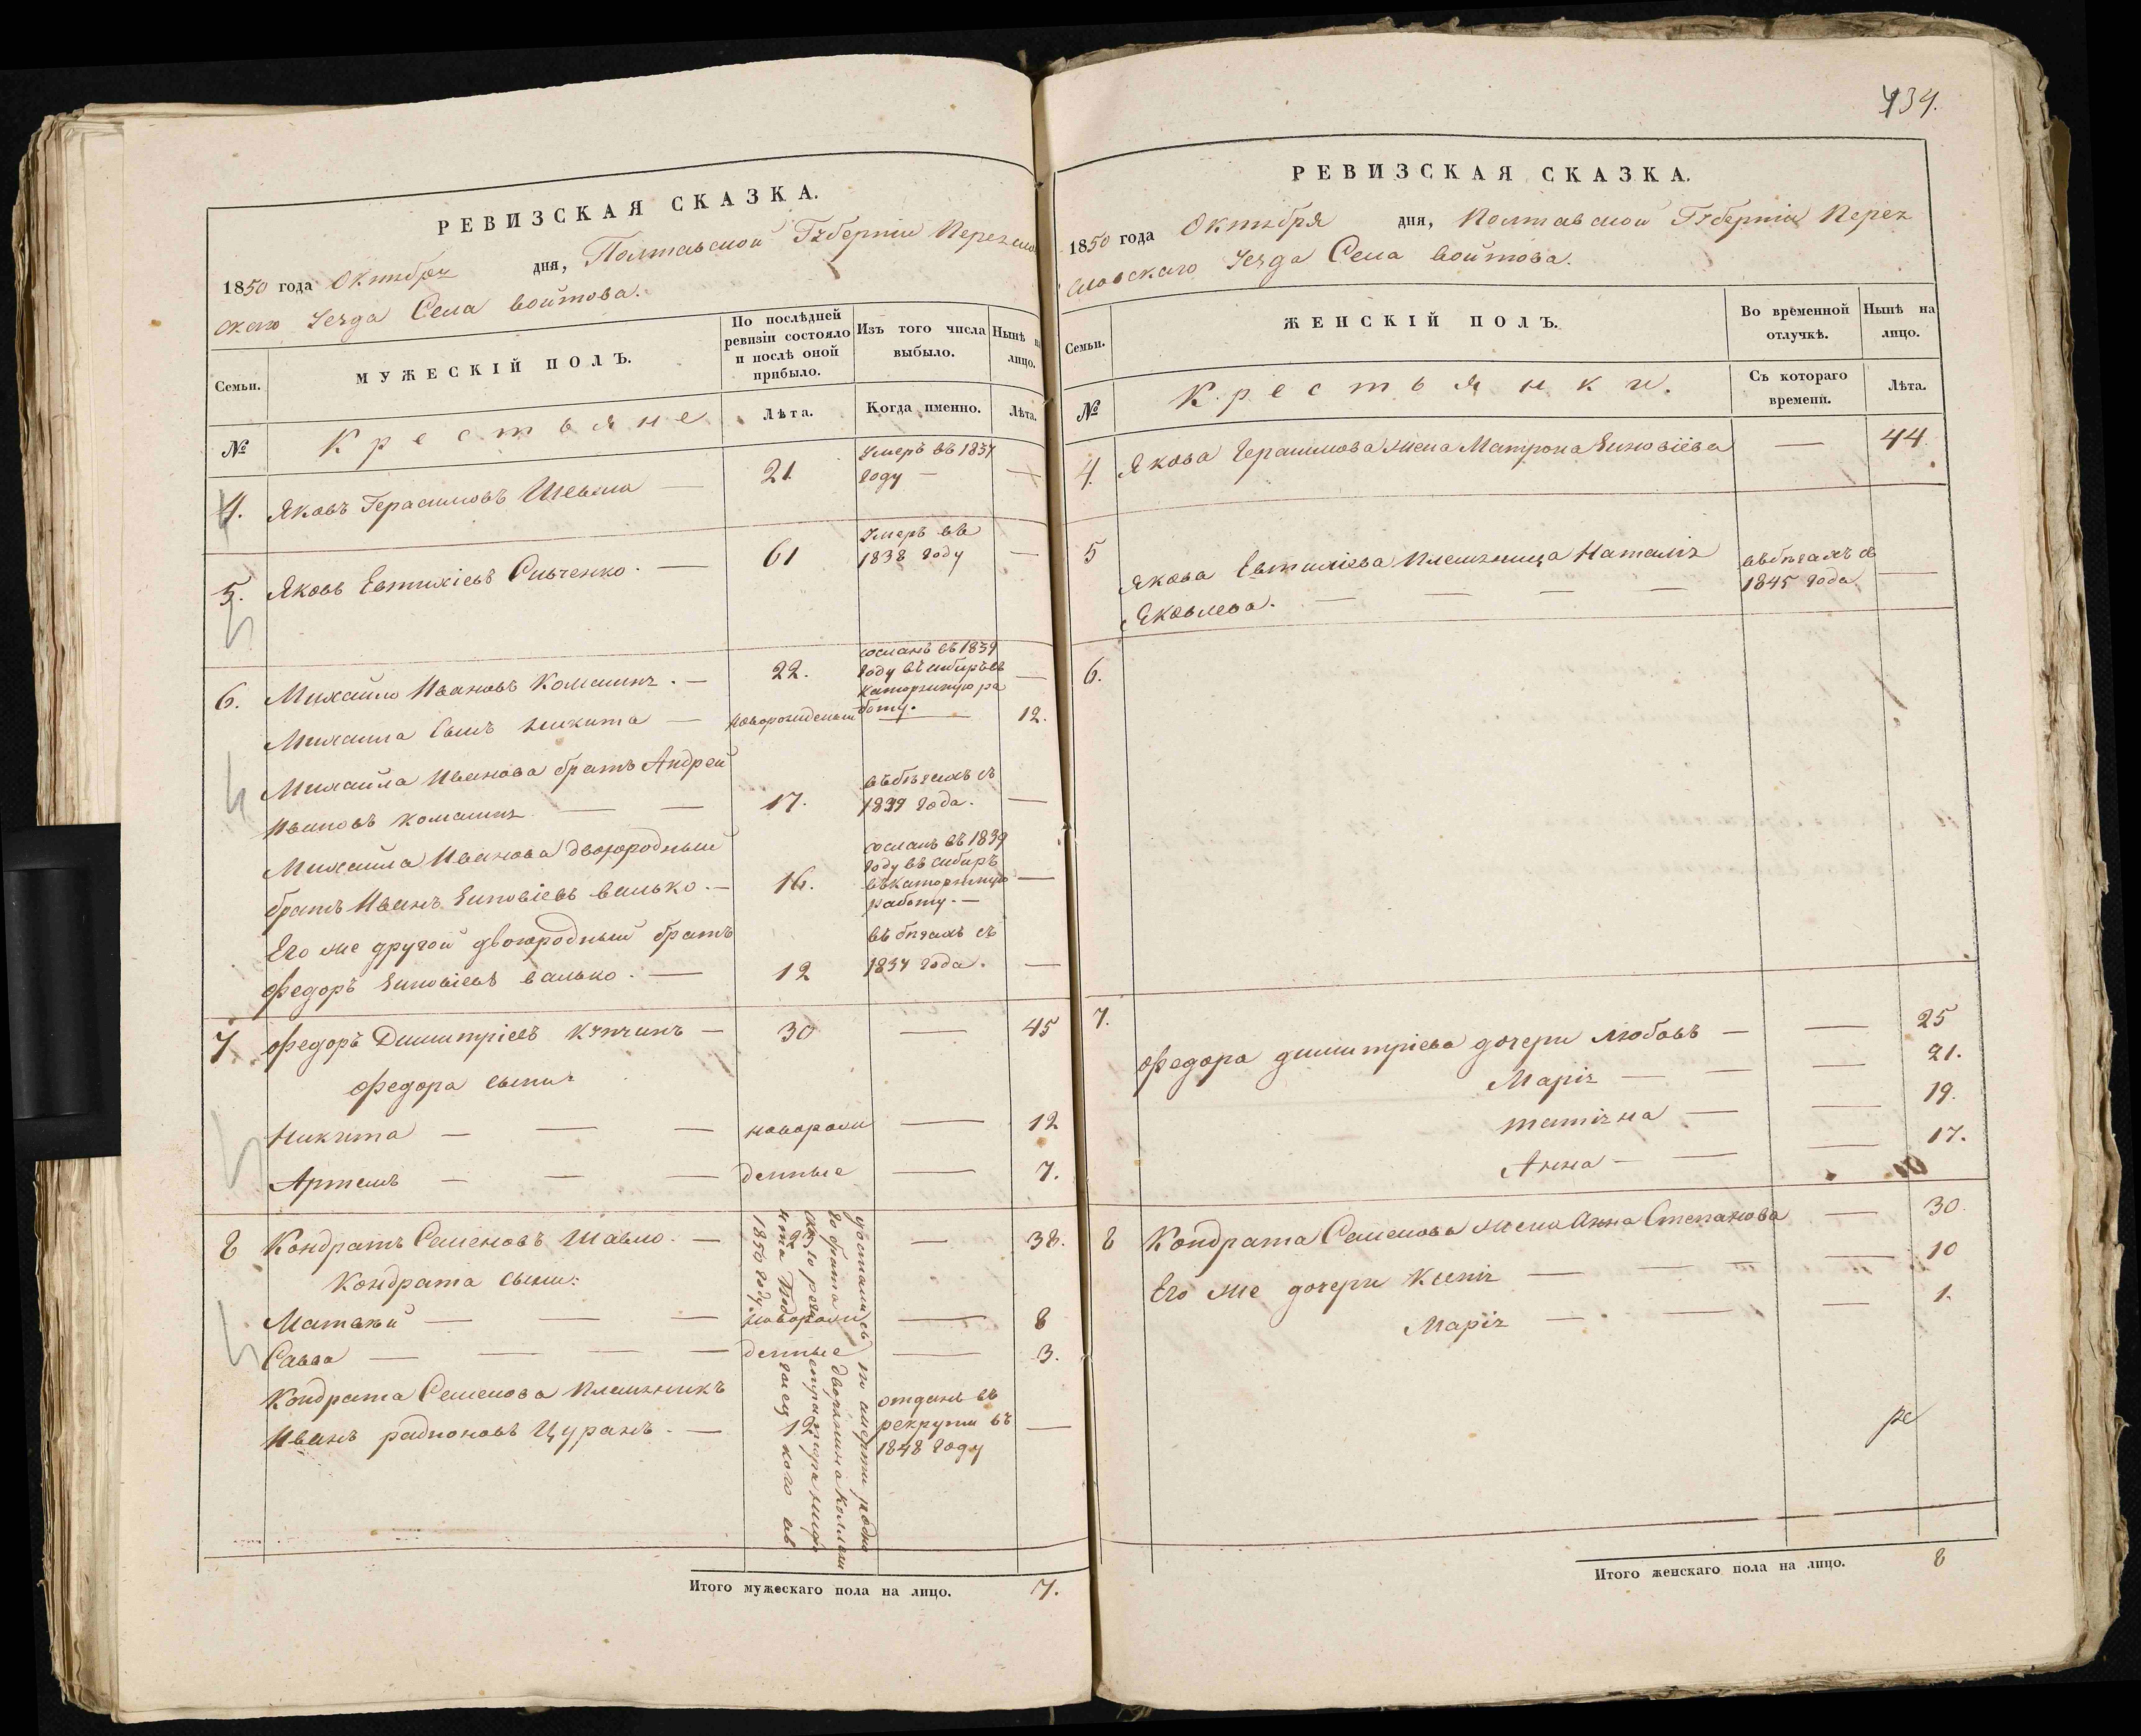 РЕВИЗСКАЯ СКАЗКА.
1850 года Октября дня, Полтавской Губерніи Переясло
скаго Уезда Села Войтова.
Семьи.
МУЖЕСКІЙ ПОЛЪ.
По послѣдней
ревизіи состояло
и послѣ оной
прибыло.
Изъ того числа
выбыло.
Нынѣ на
лицо.
№
Крестьяне
Лѣта.
Когда именно.
Лѣта.
4. Яковъ Герасимовъ — 21. Умеръ въ 1837
году — —
5. Яковъ Евтихіевъ — 61 Умеръ въ
1838 году —
6. Михайло Ивановъ — 22. сосланъ въ 1839
году въ сибирь въ
каторжную ра
боту. —
Михаила Сынъ Никита — новорожденый — 12.
Михайла Иванова братъ Андрей
Ивановъ — — 17. въ бѣгахъ съ
1839 года. —
Михаила Иванова двоюродный
братъ Иванъ Зиновіевъ валько. — 16. сосланъ въ 1839
году въ сибирь
въ каторжную
работу. — —
Его же другой двоюродный братъ
Федоръ Зиновіевъ валько. — 12 въ бѣгахъ съ
1837 года. —
7. Федоръ Димитріевъ — 30 — 45
Федора сыны
Никита — — — новорож — 12
Артемъ — — — денные — 7.
8 Кондратъ Семеновъ Шавло. — — 38.
Кондрата сыны:
Матвѣй — — — новорож — 8
Савва — — — — денные — 3.
Кондрата Семенова племянникъ
Иванъ Цуранъ. — 12 отданъ въ
рекруты въ
1848 году —
достались по смерти родна
го брата дворянина
1850 году.
Итого мужескаго пола на лицо. 7.
434.
РЕВИЗСКАЯ СКАЗКА.
1850 года Октября дня, Полтавской Губерніи Перея
словскаго Уезда Села Войтова.
Семьи.
ЖЕНСКІЙ ПОЛЪ.
Во временной
отлучкѣ.
Нынѣ на
лицо.
№
Крестьянки.
Съ котораго
времени.
Лѣта.
4. Якова Герасимова жена Матрона Зиновіева — 44.
5 Якова Евтихіева племяница Наталія
Яковлева. — — — — въ бѣгахъ съ
1845 года. —
6.
7. Федора димитріева дочери Любовь — — 25
Марія — — — 21.
татіяна — — 19.
Анна — — — 17.
8 Кондрата Семенова жена Анна Степанова — 30.
Его же дочери Ксенія — — — — 10
Марія — — — 1.
Итого женскаго пола на лицо. 8